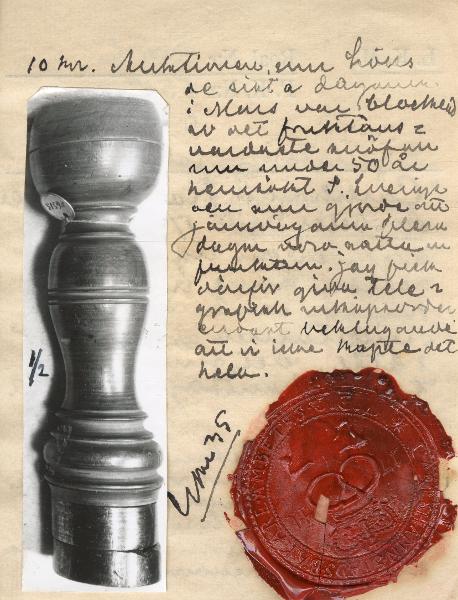 10 kr. Auktionen, som hölls
de sista dagarna
i Mars var blockerad
av det fruktans=
värdaste snöfall
som under 50 år
hemsökt S. Sverige
och som gjorde att
järnvägarna flera
dagar voro satta ur
funktion. Jag fick
därför giva tele=
grafisk inköpsorder
endast beklagande
att vi icke köpte det
hela.
1/2